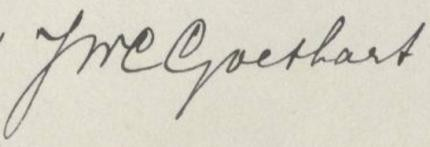 J W C Goethart